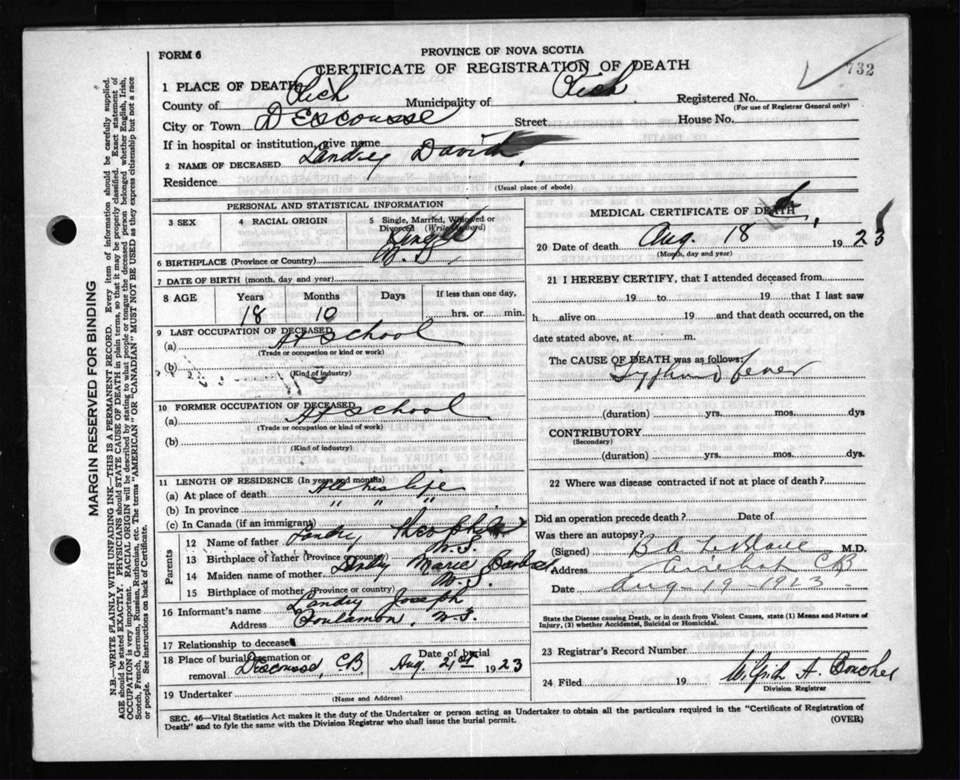 FORM 6
PROVINCE OF NOVA SCOTIA
CERTIFICATE OF REGISTRATION OF DEATH
732
1 PLACE OF DEATH
County of Rich Municipality of Rich. Registered No.
(For use of Registrar General only)
City or Town Descousse Street House No.
If in hospital or institution, give name
2 NAME OF DECEASED Landry David
Residence
(Usual place of abode)
PERSONAL AND STATISTICAL INFORMATION
3 SEX 4 RACIAL ORIGIN 5 Single, Married, Widowed or Divorced (Write the word)
Single
6 BIRTHPLACE (Province or Country) N.S.
7 DATE OF BIRTH (month, day and year)
8 AGE Years Months Days If less than one day,
18 10 hrs. or min.
9 LAST OCCUPATION OF DECEASED
(a) At school
(Trade or occupation or kind or work)
(b)
(Kind of industry)
10 FORMER OCCUPATION OF DECEASED
(a) At school
(Trade or occupation or kind of work)
(b)
(Kind of industry)
11 LENGTH OF RESIDENCE (In years and months)
(a) At place of death All his life
(b) In province " " "
(c) In Canada (if an immigrant)
Parents
12 Name of father Landry
13 Birthplace of father (Province or country) N.S.
14 Maiden name of mother Landry Marie
15 Birthplace of mother (Province or country) N.S.
16 Informant's name Landry Joseph
Address Poulamon, N.S.
17 Relationship to deceased
18 Place of burial, cremation or removal Descousse, C.B. Date of burial Aug 21st 1923
19 Undertaker
(Name and Address)
MEDICAL CERTIFICATE OF DEATH
20 Date of death Aug. 18 1923
(Month, day and year)
21 I HEREBY CERTIFY, that I attended deceased from
19 to 19 that I last saw
h alive on 19 and that death occurred, on
date stated above, at m.
The CAUSE OF DEATH was as follows:
Typhoid fever
(duration) yrs. mos. dys
CONTRIBUTORY
(Secondary)
(duration) yrs. mos. dys.
22 Where was disease contracted if not at place of death?
Did an operation precede death? Date of
Was there an autopsy?
(Signed) B A LeBlanc M.D.
Address Arichat CB
Date Aug 19 - 1923
State the Disease Causing Death, or in death from Violent Causes, state (1) Means and Nature of
Injury, (2) whether Accidental, Suicidal or Homicidal.
23 Registrar's Record Number
24 Filed 19 A. Boucher
Division Registrar
SEC. 46—Vital Statistics Act makes it the duty of the Undertaker or person acting as Undertaker to obtain all the particulars required in the "Certificate of Registration of
Death" and to fyle the same with the Division Registrar who shall issue the burial permit.
(OVER)
MARGIN RESERVED FOR BINDING
N.B.—WRITE PLAINLY WITH UNFADING INK—THIS IS A PERMANENT RECORD. Every item of information should be carefully supplied.
AGE should be stated EXACTLY. PHYSICIANS should STATE CAUSE OF DEATH in plain terms, so that it may be properly classified. Exact statement of
OCCUPATION is very important. RACIAL ORIGIN will be described by stating to what people or tongue the deceased person belonged whether English, Irish,
Scotch, French, German, Russian, Ruthenian, etc. The terms "AMERICAN" or "CANADIAN" MUST NOT BE USED as they express citizenship but not a race
or people. See instructions on back of Certificate.